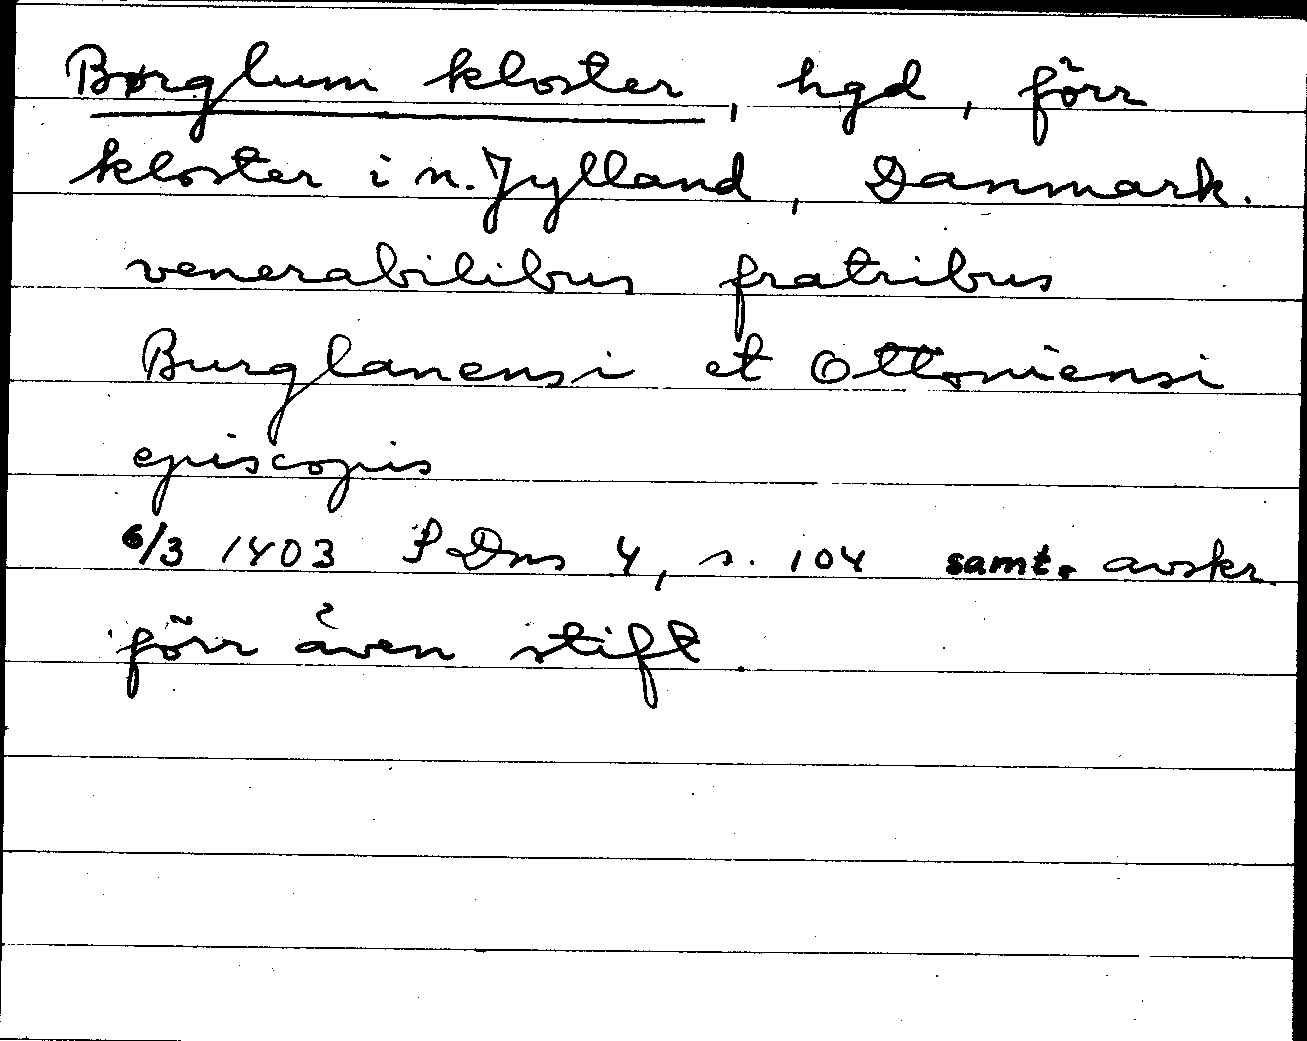 Børglum kloster, hgd, förr
kloster i n. Jylland, Danmark.
venerabilibus fratribus
Burglanensi et Ottoniensi
episcopis
6/3 1403 PDns 4, s. 104 samt. avskr.
förr även stift.